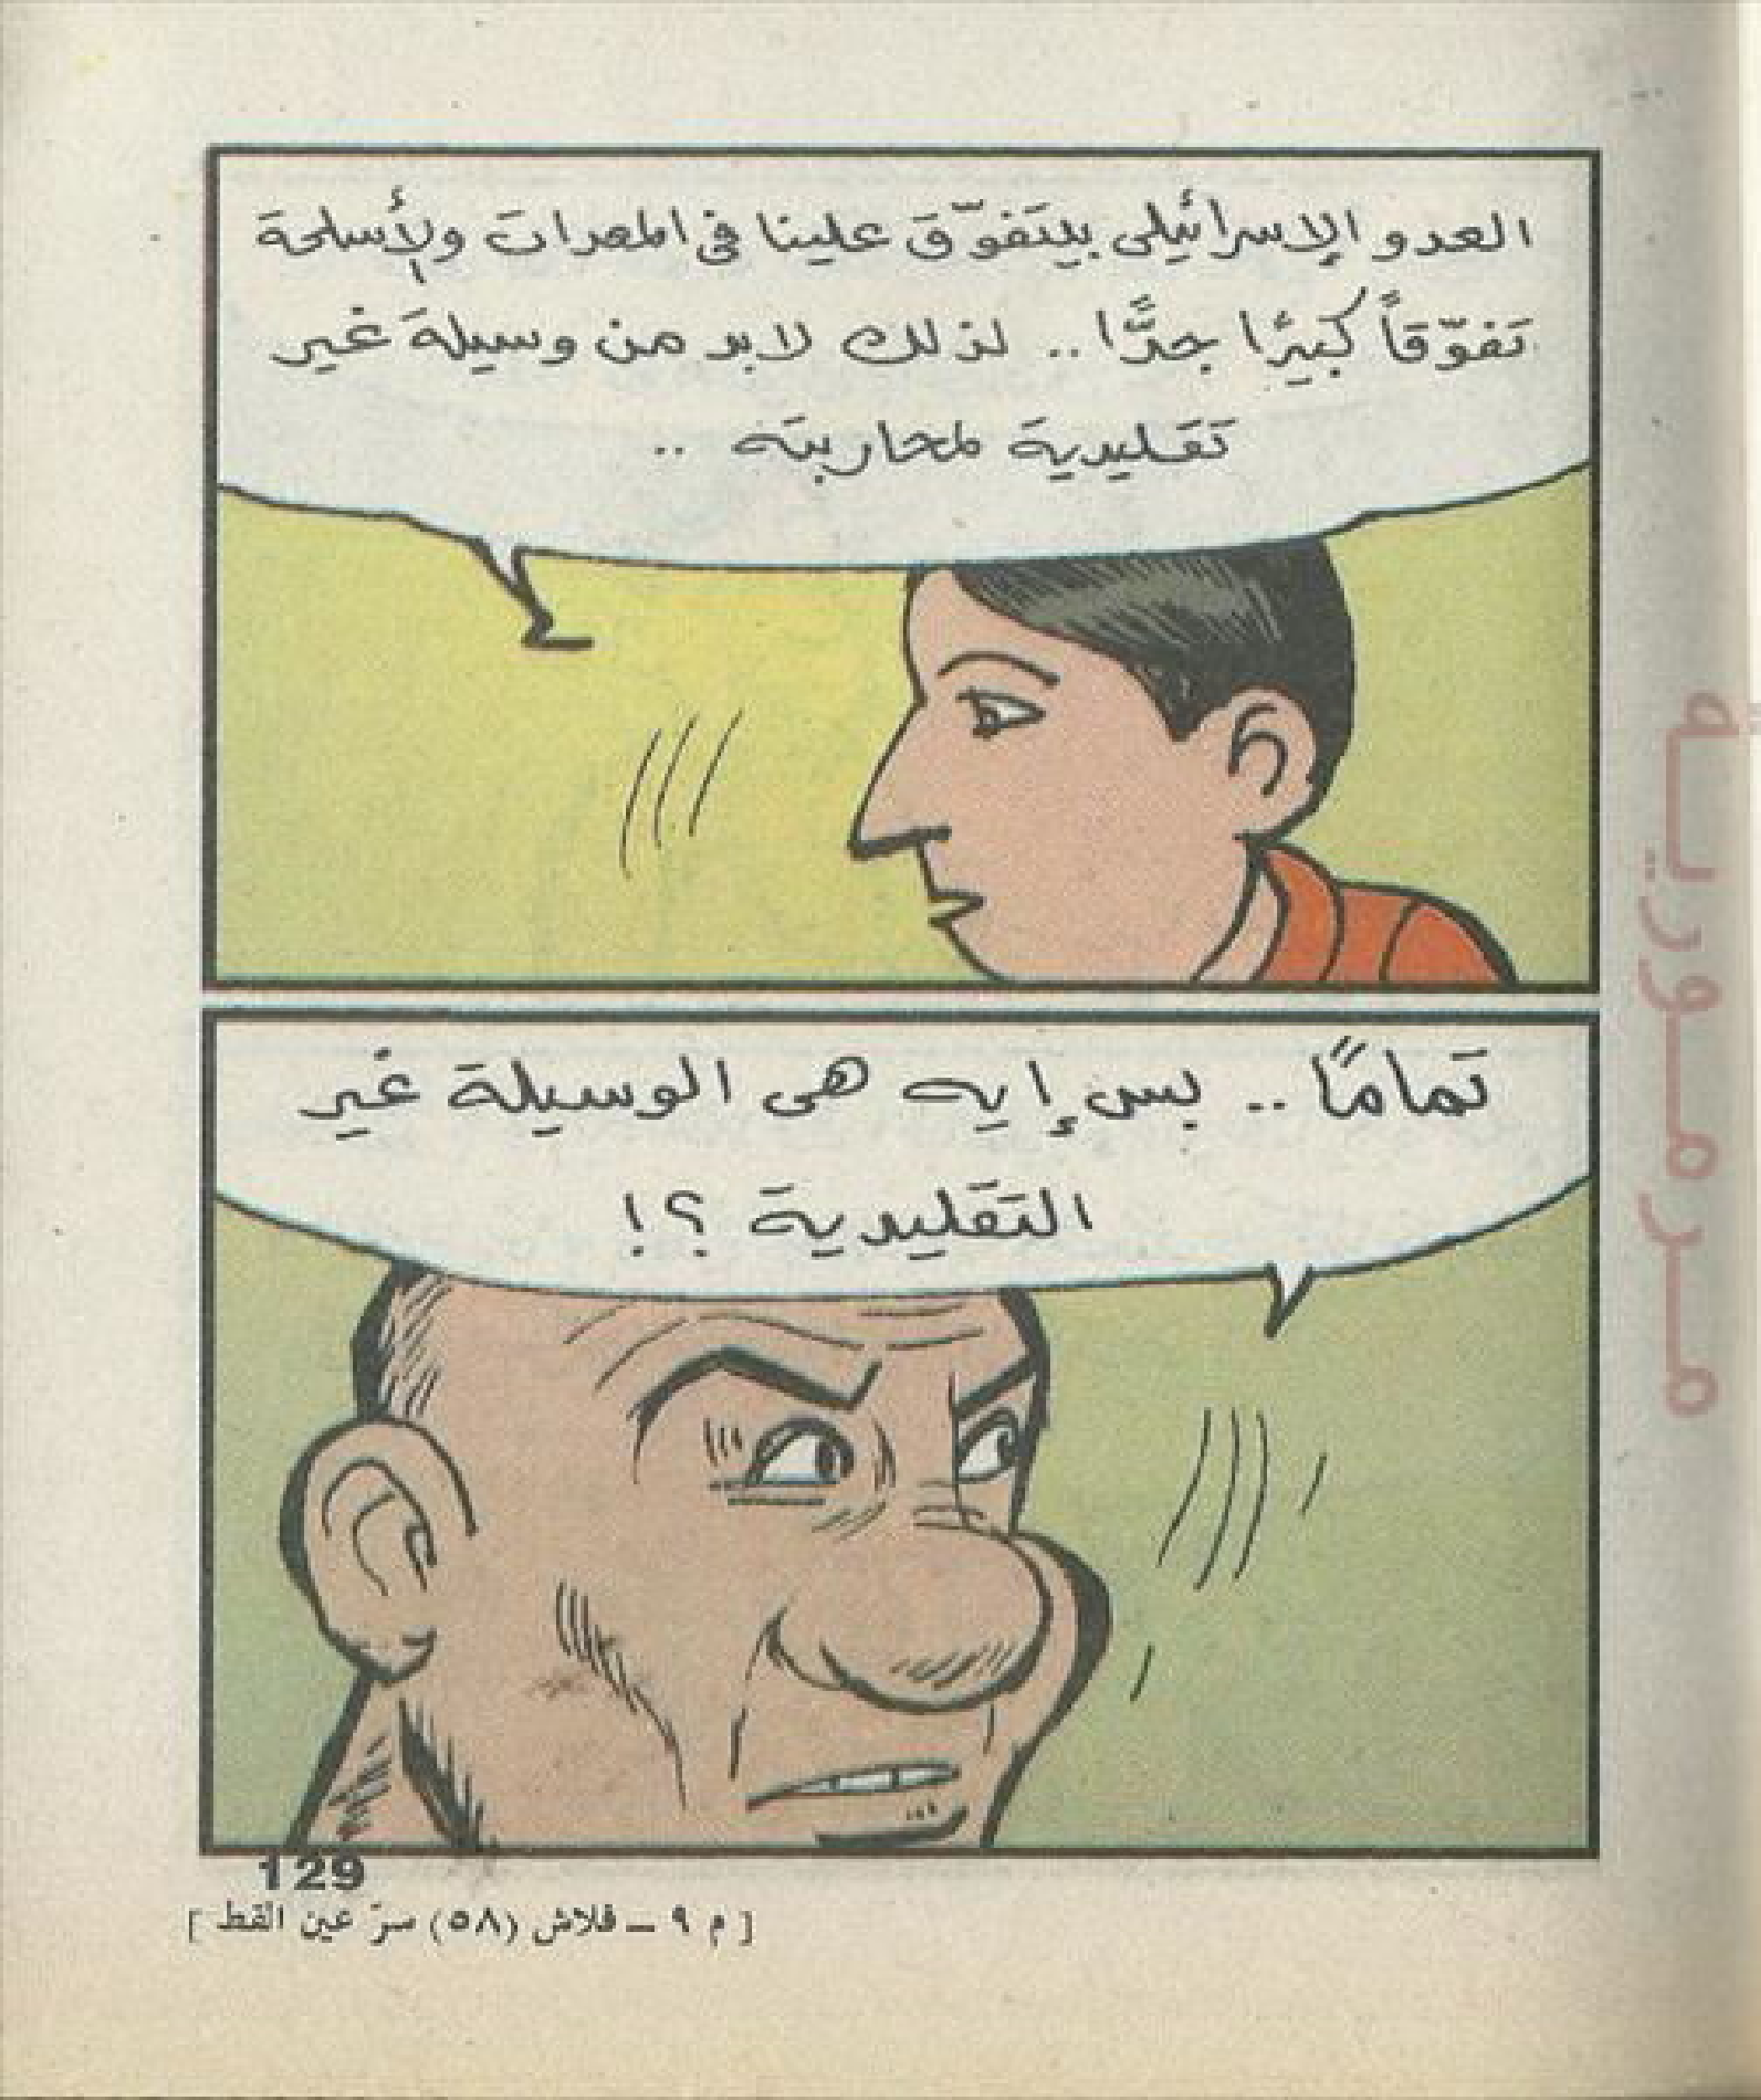 العدو الإسرائيلى بيتفوّق علينا فى المعدات ولأسلحة
تفوّقاً كبيرًا جدًّا .. لذلك لابد من وسيلة غير
تقليدية لمحاربته ..
تمامًا .. بس إيه هى الوسيلة غير
التقليدية ؟!
129
[ م ٩ – فلاش (٥٨) سرّ عين القط ]
مرمورية